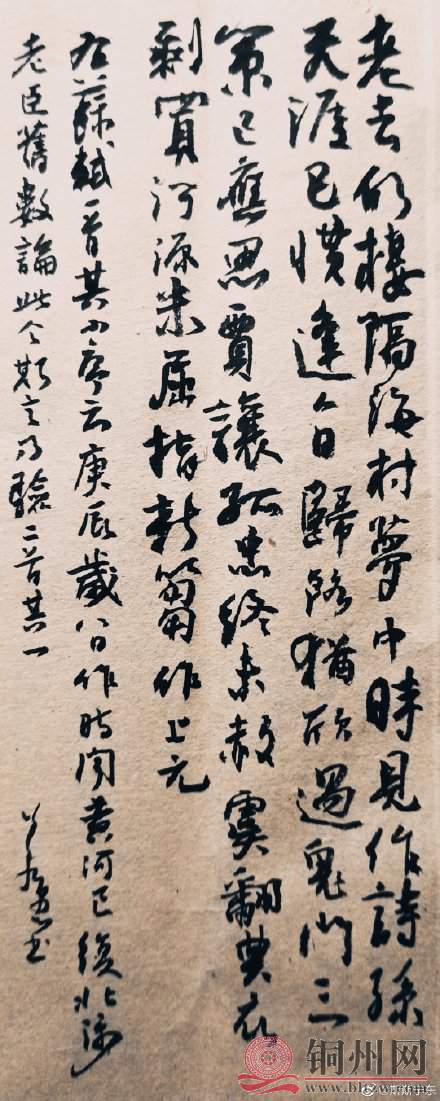 老去仍棲隔海村夢中時見作詩孫
天涯已慣逢人日歸路猶欣過鬼門三
策已應思賈讓孤忠終未赦虞翻典衣
剩買河源米屈指新篘作上元
右蘇軾一首其小序云庚辰歲人日作時聞黃河已復北流
老臣舊數論此今斯言乃驗二首其一
書
铜州网